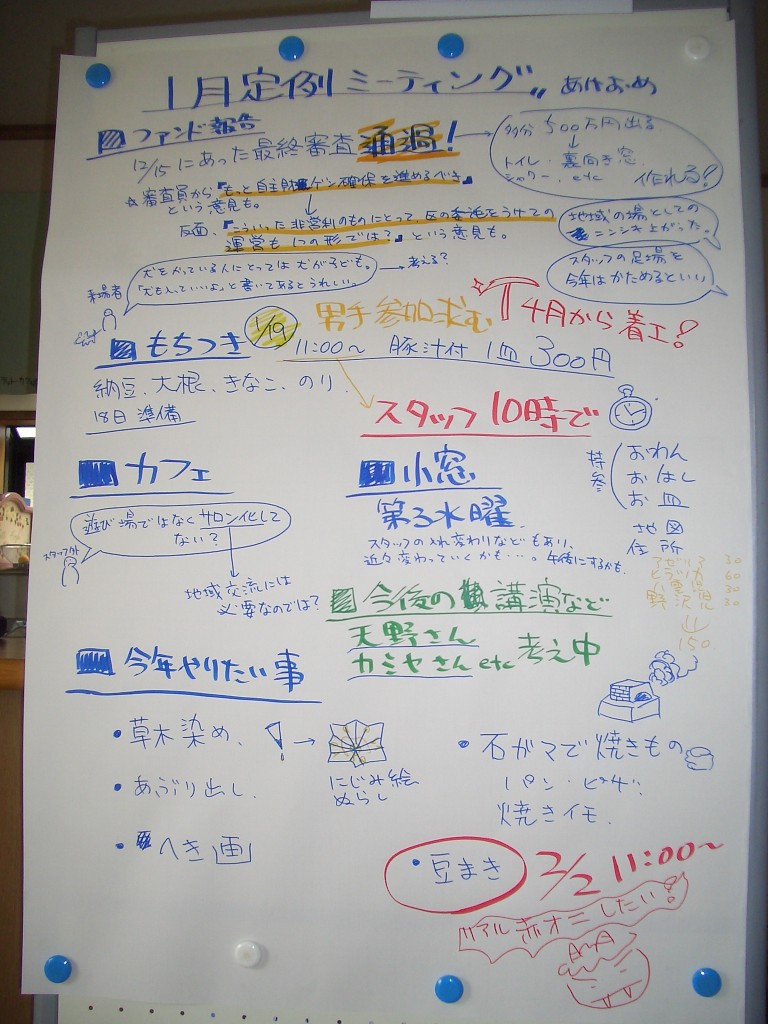 1月定例ミーティング〃 あけおめ
ファンド報告
12/15にあった最終審査通過!
多分 500万円出る
↓
トイレ・裏向き窓.
シャワー. etc 作れる!
☆審査員から『もっと自主財ゲン確保を進めるべき』
という意見も。
反面、『こういった非営利のものにとって、区の委託をうけての
運営も1つの形では?』という意見も。
地域の場としての
ニンシキ上がった。
スタッフの足場を
今年はかためるといい
来場者
犬をかっている人にとっては犬が子ども。
「犬も入っていいよ」と書いてあるとうれしい。
→考える?
4月から着工!
男手参加求む
もちつき 1/19 11:00〜 豚汁付 1皿 300円
納豆、大根、きなこ、のり.
18日準備
スタッフ10時で
持参
おわん
おはし
お皿
地図
住所
カフェ
スタッフ外
遊び場ではなくサロン化して
ない?
地域交流には
必要なのでは?
小窓
第3水曜.
スタッフの入れ変わりなどもあり、
近々変わっていくかも…。午後にするかも.
30
60
30
30
↓
150
今後の講演など
天野さん
カミヤさんetc 考え中
今年やりたい事
・草木染め、
→
にじみ絵
ぬらし
・あぶり出し.
・へき画
・石ガマで焼きもの
パン・ピザ.
焼きイモ.
・豆まき 2/2 11:00〜
リアル赤オニしたい!